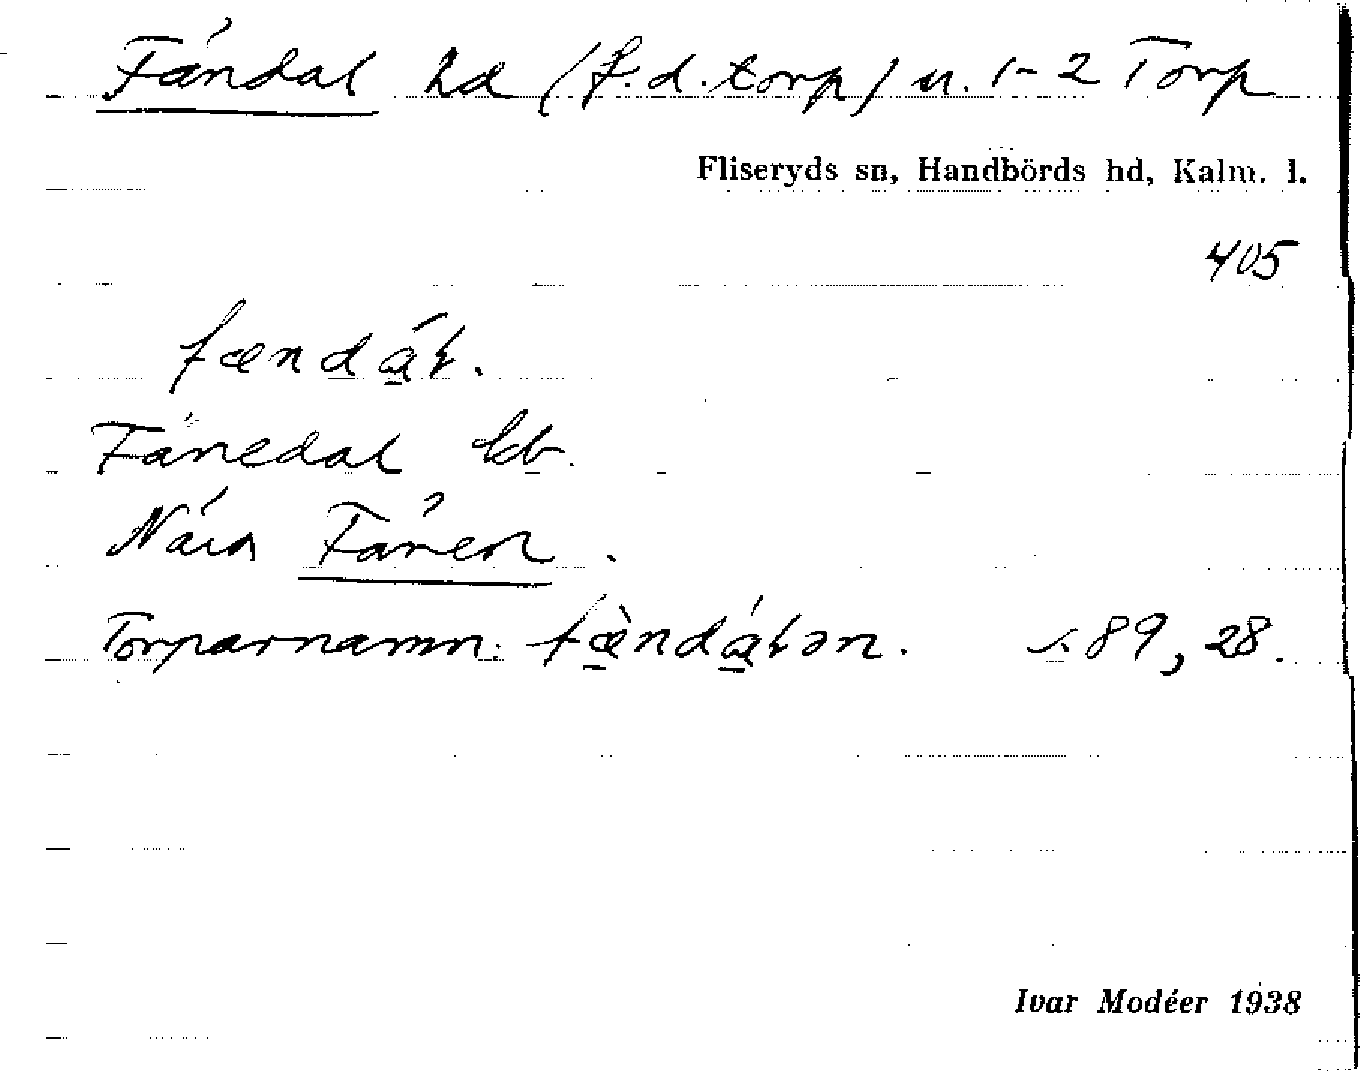 Fändal hd (f.d. torp) u. 1-2 Torp
Fliseryds sn, Handbörds hd, Kalm. l.
405
fændá̱ɫ.
Fänedal kb.
Nära Fånen.
Torparnamn: fæ̱̀ndá̱ɫən. s. 89, 28.
Ivar Modéer 1938